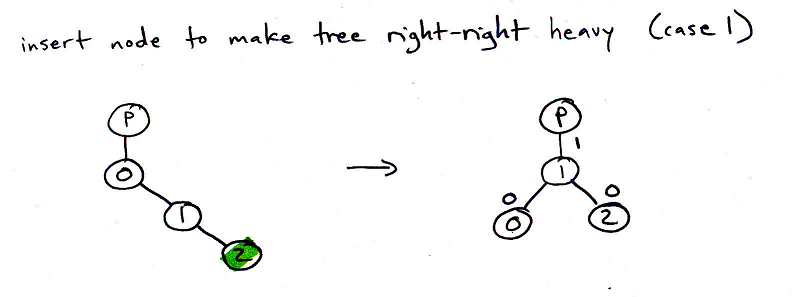 insert node to make tree right-right heavy (case 1)
P
0
1
2
P
1
1
0
0
0
2